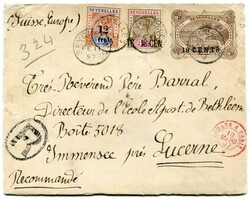 (Suisse, Europe)
324
SEYCHELLES
12 cents
SEYCHELLES
18 CENTS
SEYCHELLES
18 CENTS
Très Révérend Père Barral,
Directeur de l'école Apost. de Bethléem
Boîte 5018
Immensee près Lucerne
R
Recommandé